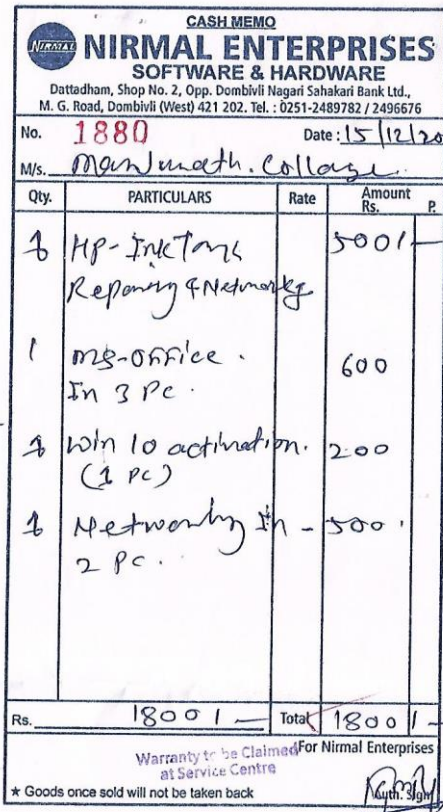 CASH MEMO
NIRMAL
NIRMAL ENTERPRISES
SOFTWARE & HARDWARE
Dattadham, Shop No. 2, Opp. Dombivli Nagari Sahakari Bank Ltd.,
M. G. Road, Dombivli (West) 421 202. Tel. : 0251-2489782 / 2496676
No. 1880 Date : 15/12/20
M/s. Manjunath. College
Qty. PARTICULARS Rate Amount
Rs. P.
1 HP-Ink Tank 500/-
Reparing & Networkg
1 MS-Office . 600
In 3 Pc.
1 Win 10 activation. 200
(1 Pc)
1 Networking In - 500
2 Pc.
Rs. 1800/- Total 1800/-
Warranty to be Claimed For Nirmal Enterprises
at Service Centre
★ Goods once sold will not be taken back Auth. Sign